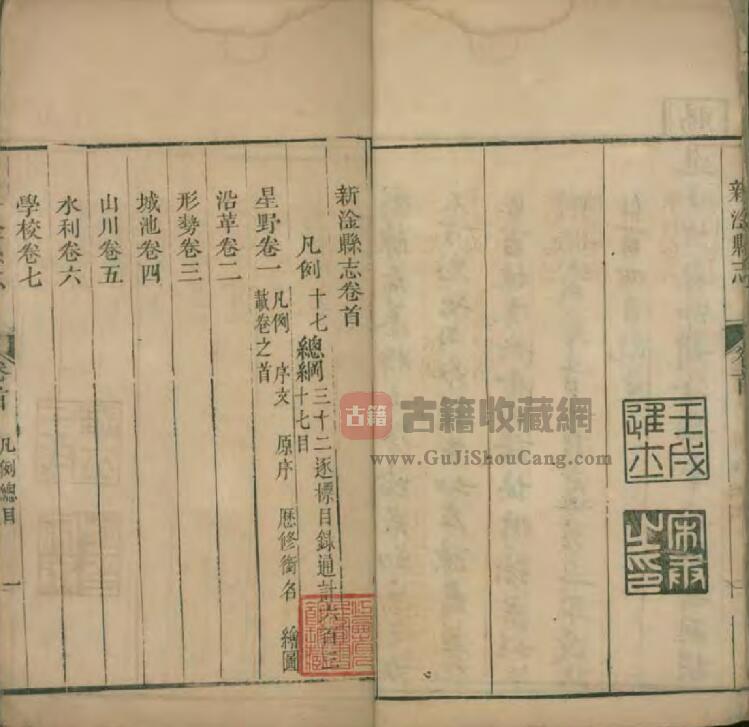 新淦縣志 卷首
壬戌進士
新淦縣志卷首
凡例 十七 總綱 三十二逐標目錄通計六百三
十七目
凡例 序文 原序 厯修銜名 繪圖
載卷之首
星野卷一
沿革卷二
形勢卷三
城池卷四
山川卷五
水利卷六
學校卷七
卷首 凡例總目 一
古籍 古籍收藏網
www.GuJiShouCang.com